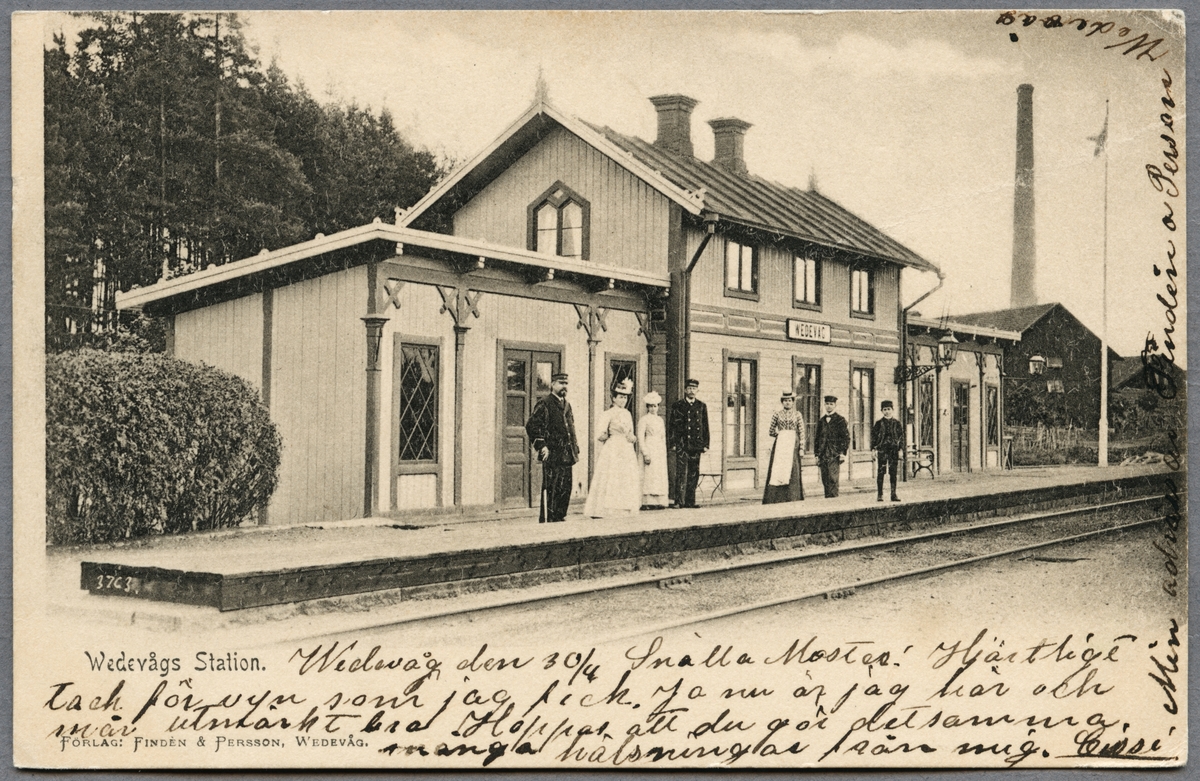 WEDEVÅG
3763
Wedevågs Station.
Wedevåg den 30/4 Snälla Moster! Hjärtligt
tack för vyn som jag fick. Ja nu är jag här och
mår utmärkt bra. Hoppas att du gör detsamma.
många hälsningar från mig. Cissi
FÖRLAG: FINDÉN & PERSSON, WEDEVÅG.
Min adress är Findén o Person
Wedevåg